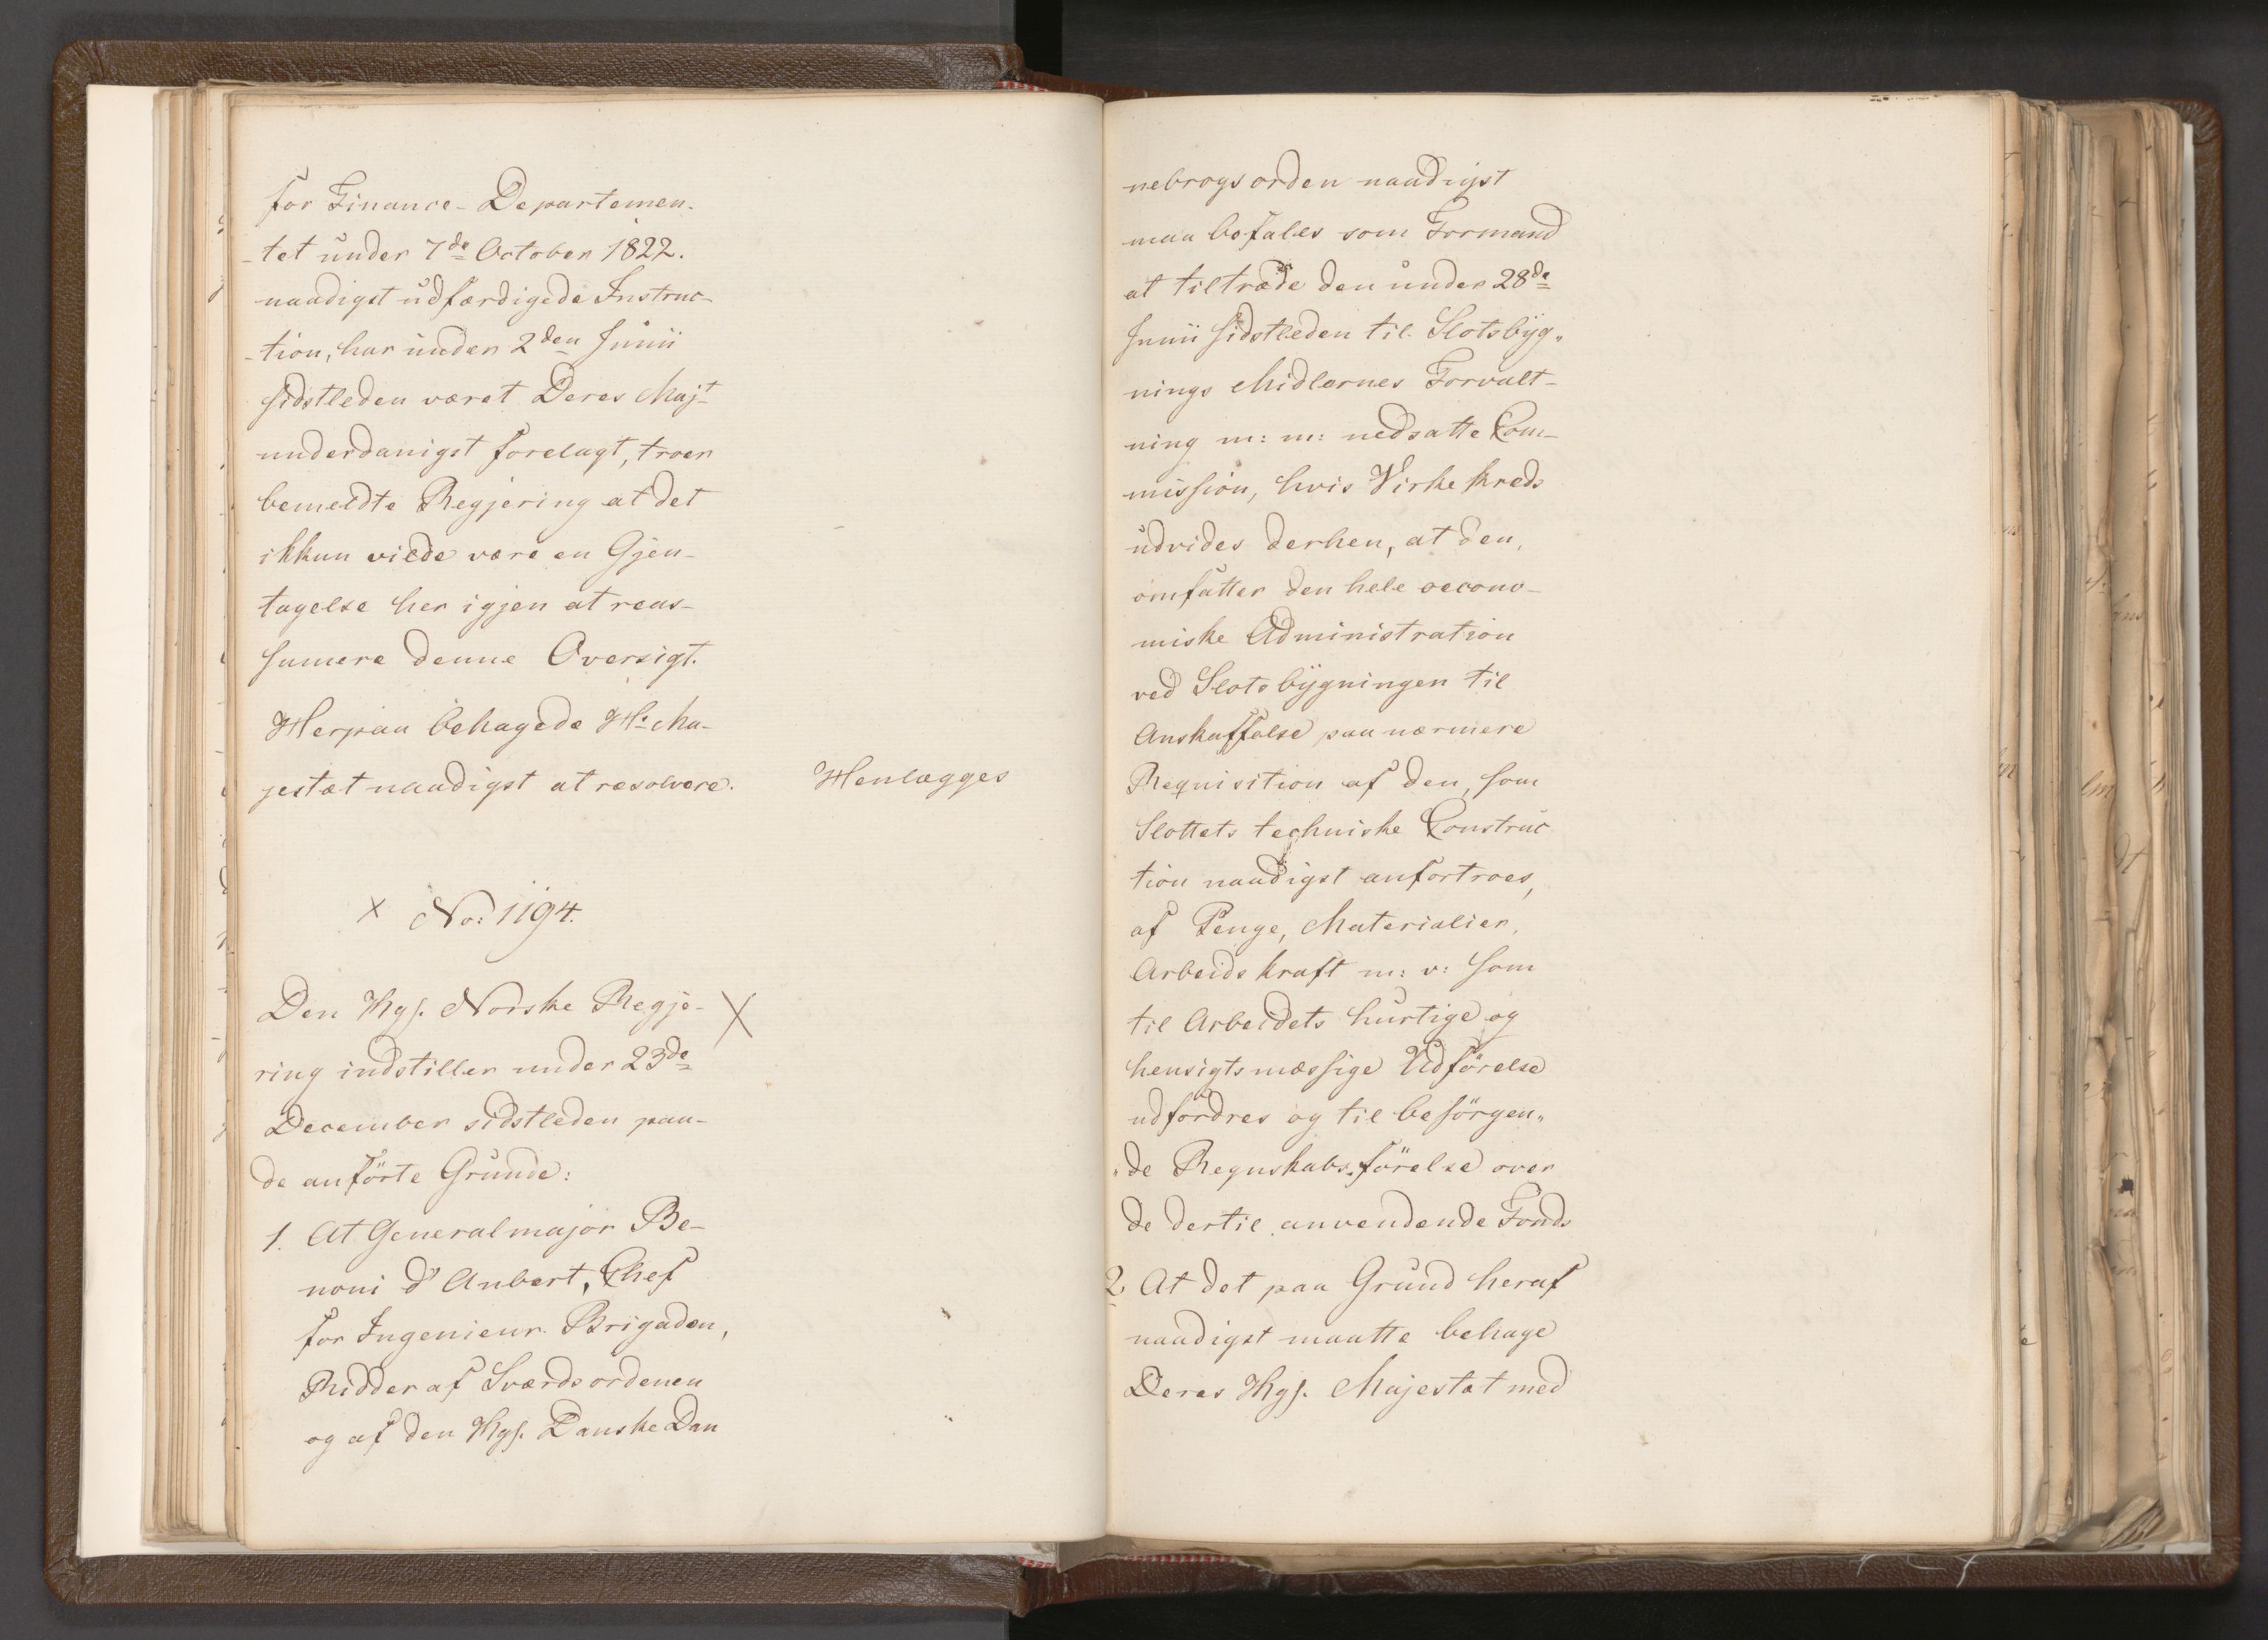 for Finance-Departemen-
-tet under 7de October 1822.
naadigst udfærdigede Instruc-
-tion, har under 2den Junii
sidstleden været Deres Majt
underdanigst forelagt, troer
bemeldte Regjering at det
ikkun vilde være en Gjen-
tagelse her igjen at reas-
sumere denne Oversigt.
Herpaa behagede Hs Ma-
jestæt naadigst at resolvere.
Henlægges
x No: 1194.
Den Kgs. Norske Regje- X
ring indstiller under 23de
December sidstleden paa-
de anførte Grunde:
1. At Generalmajor Be-
noni d'Aubert, Chef
for Ingenieur Brigaden,
Ridder af Sværdsordenen
og af den Kgs. Danske Dan
nebrogsorden naadigst
maa befales som Formand
at tiltræde den under 28de
Junii sidstleden til Slotsbyg„
nings Midlernes Forvalt-
ning m: m: nedsatte Com-
mission, hvis Virkekreds
udvides derhen, at den,
omfatter den hele oecono-
miske Administration
ved Slotsbygningen til
Anskaffelse paa nærmere
Requisition af den, som
Slottets techniske Construc
tion naadigst anfortroes,
af Penge, Materialier,
Arbeidskraft m: v: som
til Arbeidets hurtige og
hensigtsmæssige Udførelse
udfordres og til besørgen„
„de Regnskabs-førelse over
de dertil anvendende Fonds
2, At det paa Grund heraf
naadigst maatte behage
Deres Kgs. Majestæt med